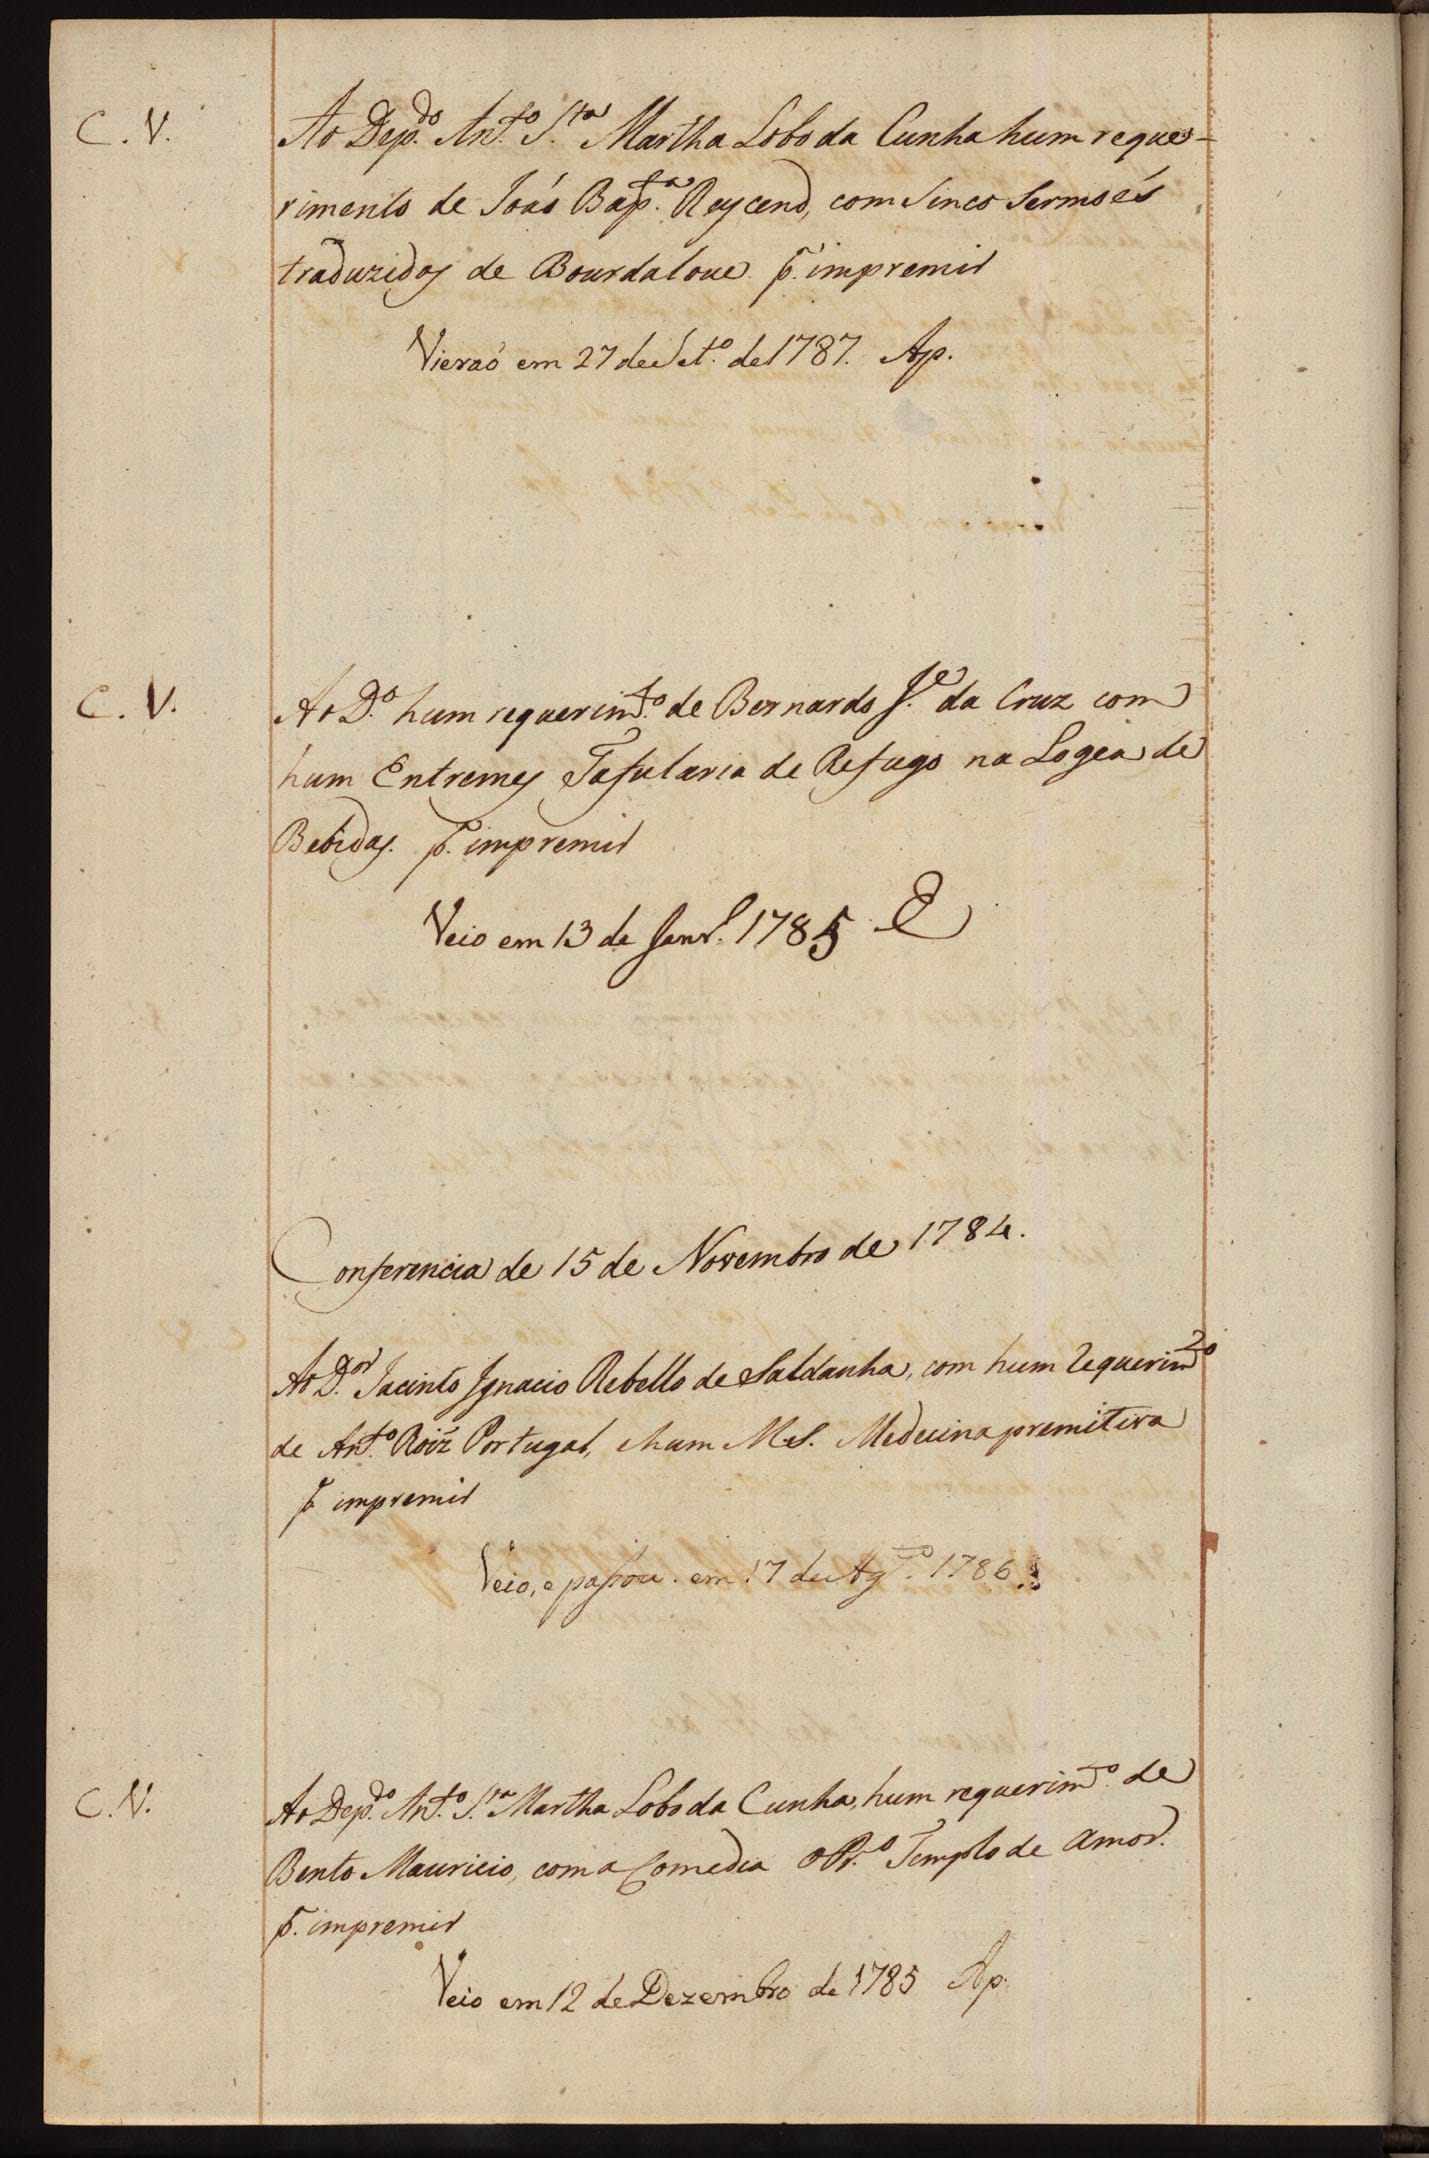 C. V.
Ao Dep.do An.to S.ta Martha Lobo da Cunha hum reque-
rimento de Joaó Bap.ta Reycend, com sinco Sermoés
traduzidos de Bourdaloue p.a impremir
Vieraó em 27 de Set.o de 1787. Ap.
C. V.
Ao D.o hum requerim.to de Bernardo J.e da Cruz com
hum Entremes Tafularia de Refugo na Logea de
Bebidas. p.a impremir
Veio em 13 de Janr.o 1785
Conferencia de 15 de Novembro de 1784.
Ao D.or Jacinto Ignacio Rebello de Saldanha, com hum requerim.to
de Ant.o Roiz Portugal, e hum M.S. Medecina premitiva
p.a impremir
Veio, e passou em 17 de Ag.to 1786
C. V.
Ao Dep.do An.to S.ta Martha Lobo da Cunha, hum requerim.to de
Bento Mauricio, com a Comedia o Pr.o Templo de Amor.
p.a impremir
Veio em 12 de Dezembro de 1785 Ap.